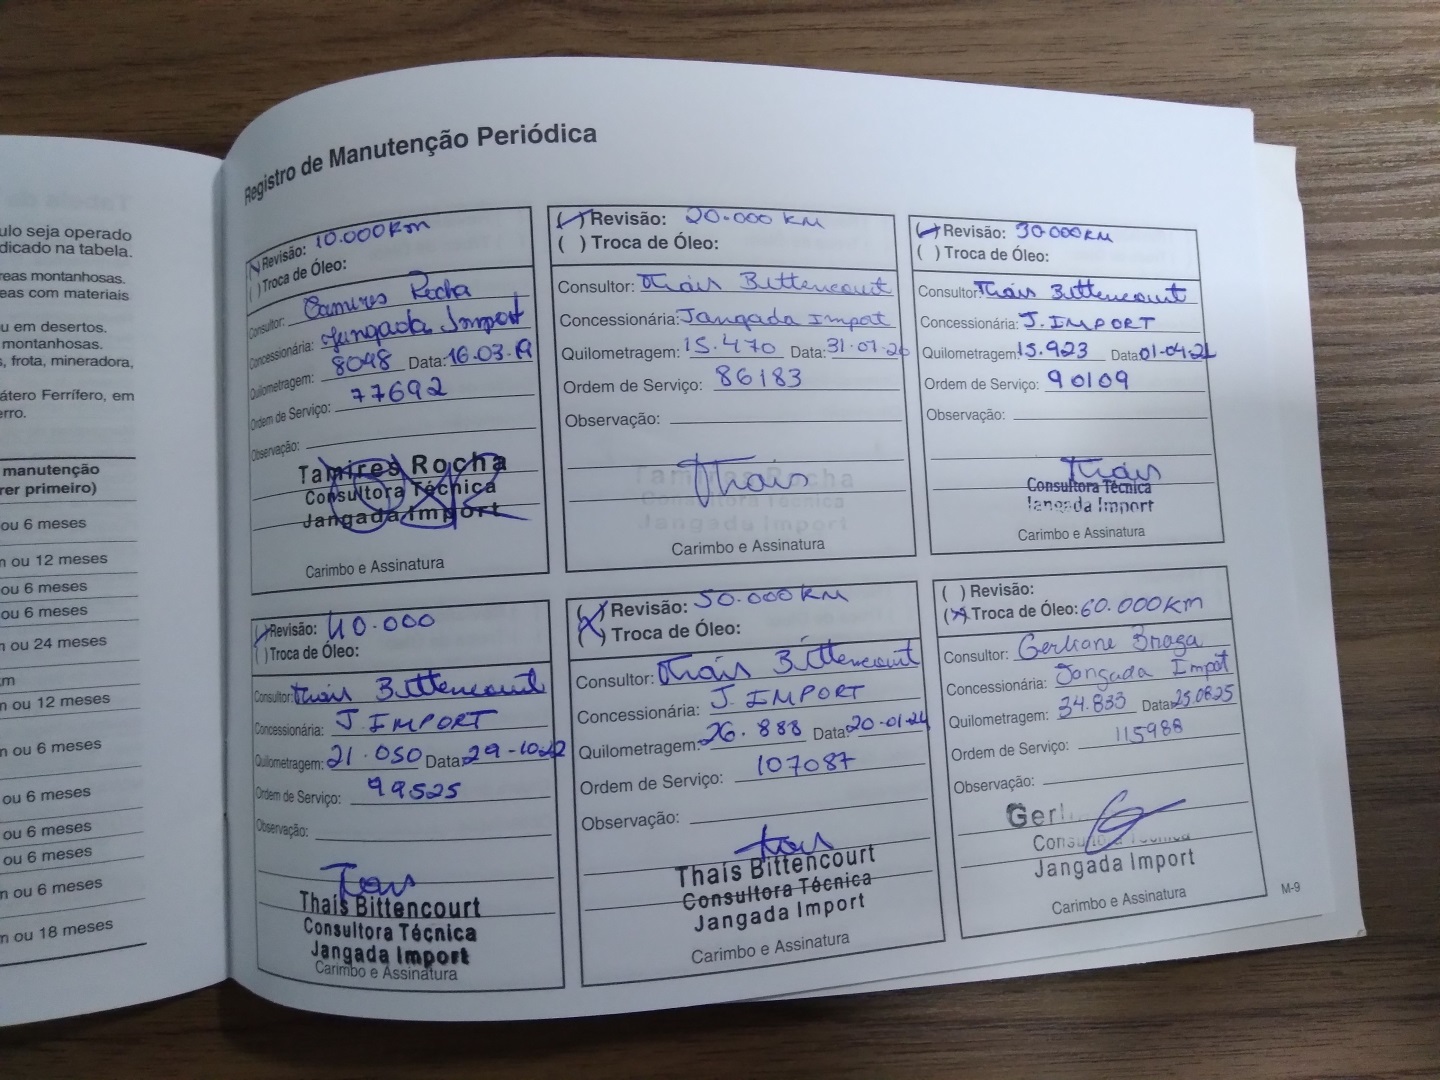 ulo seja operado
dicado na tabela.
reas montanhosas.
eas com materiais
u em desertos.
montanhosas.
s, frota, mineradora,
átero Ferrífero, em
erro.
manutenção
rer primeiro)
ou 6 meses
n ou 12 meses
ou 6 meses
ou 6 meses
n ou 24 meses
m
n ou 12 meses
n ou 6 meses
ou 6 meses
ou 6 meses
ou 6 meses
n ou 6 meses
m ou 18 meses
Registro de Manutenção Periódica
Revisão: 10.000km
( ) Troca de Óleo:
Consultor: Tamires Rocha
Concessionária: Jangada Import
Quilometragem: 8048 Data: 16.03.19
Ordem de Serviço: 77692
Observação:
Tamires Rocha
Consultora Técnica
Jangada Import
Carimbo e Assinatura
Revisão: 20.000 KM
( ) Troca de Óleo:
Consultor: Thais Bittencourt
Concessionária: Jangada Impot
Quilometragem: 15.470 Data: 31-07-20
Ordem de Serviço: 86183
Observação:
Thais
Tamires Rocha
Consultora Técnica
Jangada Import
Carimbo e Assinatura
Revisão: 30.000KM
( ) Troca de Óleo:
Consultor: Thais Bittencourt
Concessionária: J. IMPORT
Quilometragem: 15.923 Data: 01-04-21
Ordem de Serviço: 90109
Observação:
Thais
Consultora Técnica
Jangada Import
Carimbo e Assinatura
Revisão: 40.000
( ) Troca de Óleo:
Consultor: Thais Bittencourt
Concessionária: J. IMPORT
Quilometragem: 21.050 Data: 29-10-22
Ordem de Serviço: 99525
Observação:
Thais Bittencourt
Consultora Técnica
Jangada Import
Carimbo e Assinatura
Revisão: 50.000KM
Troca de Óleo:
Consultor: Thais Bittencourt
Concessionária: J. IMPORT
Quilometragem: 26.888 Data: 20-01-24
Ordem de Serviço: 107087
Observação:
Thais Bittencourt
Consultora Técnica
Jangada Import
Carimbo e Assinatura
( ) Revisão:
(X) Troca de Óleo: 60.000KM
Consultor: Gerliane Braga
Concessionária: Jangada Impot
Quilometragem: 34.833 Data: 25.08.25
Ordem de Serviço: 115988
Observação:
Jangada Import
Carimbo e Assinatura
M-9